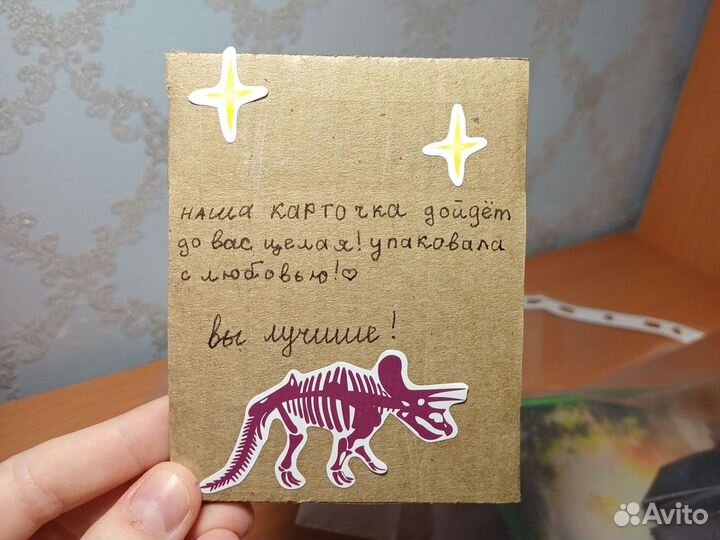 наша карточка дойдёт
до вас целая! упаковала
с любовью!♡
вы лучшие!
Avito